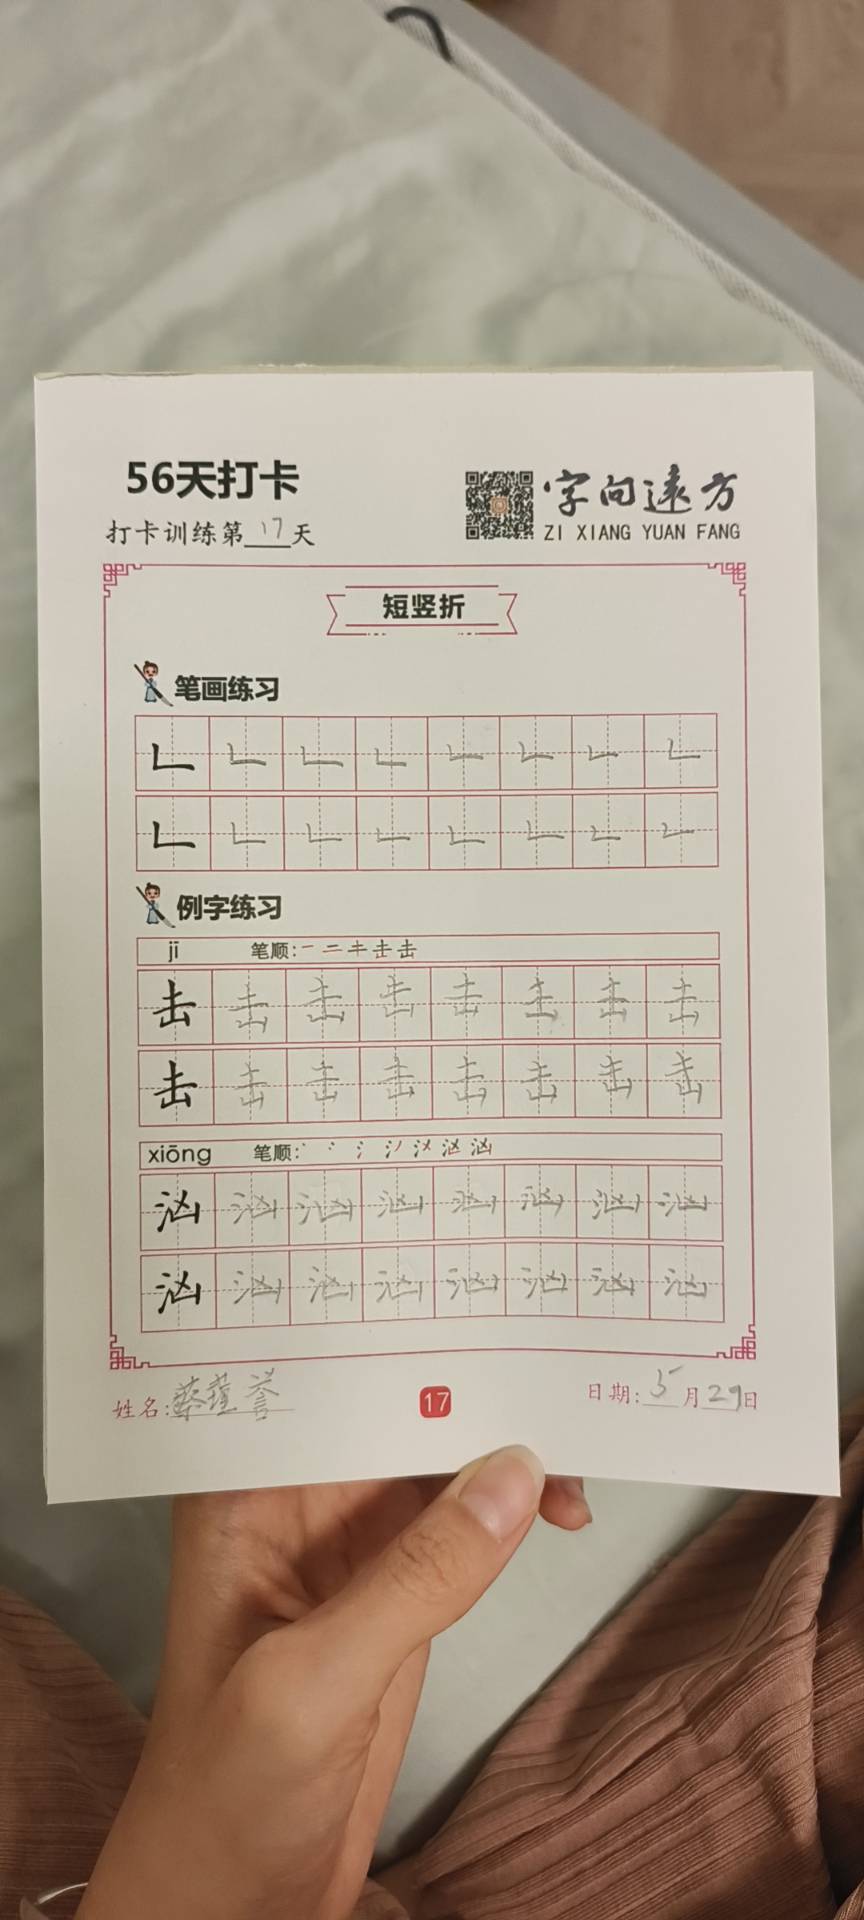 56天打卡
字向遠方
打卡训练第17天
ZI XIANG YUAN FANG
短竖折
笔画练习
𠃊 𠃊 𠃊 𠃊 𠃊 𠃊 𠃊 𠃊
𠃊 𠃊 𠃊 𠃊 𠃊 𠃊 𠃊 𠃊
例字练习
jī 笔顺:一 二 キ 击 击
击 击 击 击 击 击 击 击
击 击 击 击 击 击 击 击
xiōng 笔顺:
汹 汹 汹 汹 汹 汹 汹 汹
汹 汹 汹 汹 汹 汹 汹 汹
姓名:蔡瑾誉 17 日期:5月29日